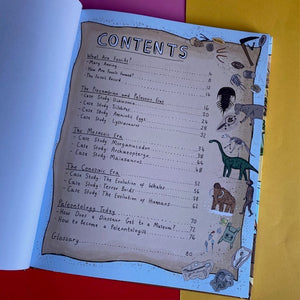 CONTENTS
What Are Fossils? 4
- Mary Anning 6
- How Are Fossils Formed? 8
- The Fossil Record
The Precambrian and Paleozoic Eras 16
- Case Study: Dickinsonia 20
- Case Study: Trilobites 24
- Case Study: Amniotic Eggs 28
- Case Study: Lystrosaurus 32
The Mesozoic Era 34
- Case Study: Morganucodon 38
- Case Study: Archaeopteryx 44
- Case Study: Maiasaurus 48
The Cenozoic Era 52
- Case Study: The Evolution of Whales 56
- Case Study: Terror Birds 58
- Case Study: The Evolution of Humans 62
Palaeontology Today 70
- How Does a Dinosaur Get to a Museum? 72
- How to Become a Palaeontologist 76
Glossary 80